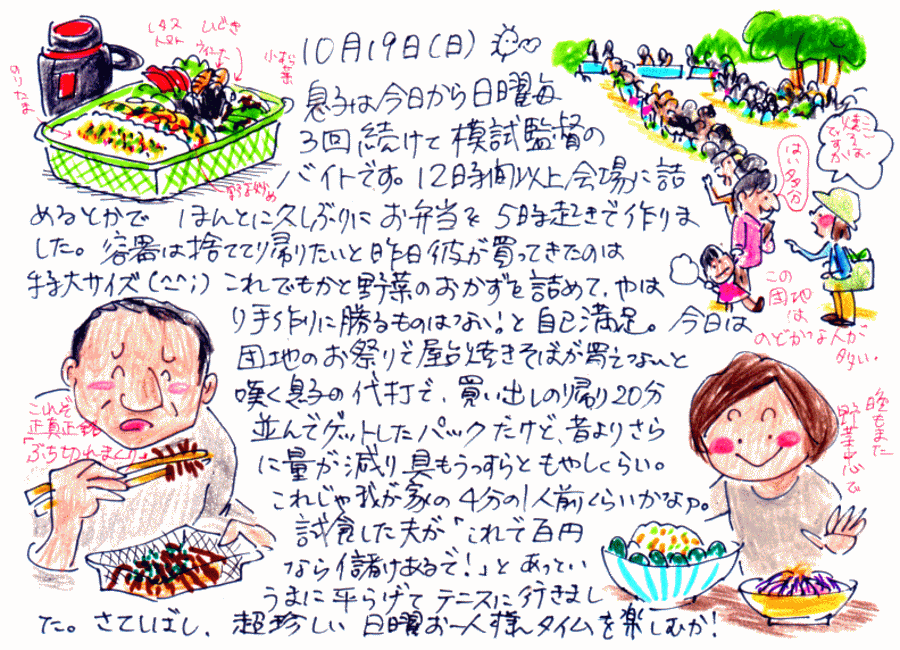 10月19日(日)
息子は今日から日曜毎
3回続けて模試監督の
バイトです。12時間以上会場に詰
めるとかで ほんとに久しぶりにお弁当を5時起きで作りま
した。容器は捨てて帰りたいと昨日彼が買ってきたのは
特大サイズ(^^;) これでもかと野菜のおかずを詰めて、やは
り手作りに勝るものはない!と自己満足。今日は
団地のお祭りで屋台焼きそばが買えないと
嘆く息子の代打で、買い出しの帰り20分
並んでゲットしたパックだけど、昔よりさら
に量が減り具もうっすらともやしくらい。
これじゃ我が家の4分の1人前くらいかなァ。
試食した夫が「これで百円
なら儲けあるで!」とあってい
うまに平らげてテニスに行きまし
た。さてしばし、超珍しい日曜お一人様タイムを楽しむか!
のりたま
レタス
トマト
ひじき
ウィンナー
小松菜
野菜炒め
ここ
焼そば
ですか
はい多分
この
団地
は
のどかな人が
多い.
これぞ
正真正銘
「ぶち切れまくり」
晩もまた
野菜中心で